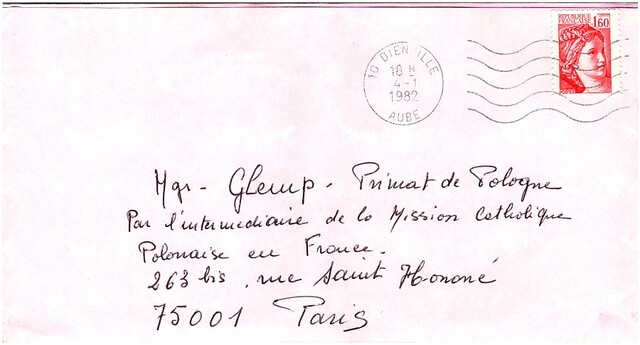 REPUBLIQUE
FRANÇAISE 1,60
10 DIENVILLE
10 H
4-1
1982
AUBE
Mgr - Glemp - Primat de Pologne
Par l'intermediaire de la Mission Catholique
Polonaise en France.
263 bis, rue Saint Honoré
75001 Paris